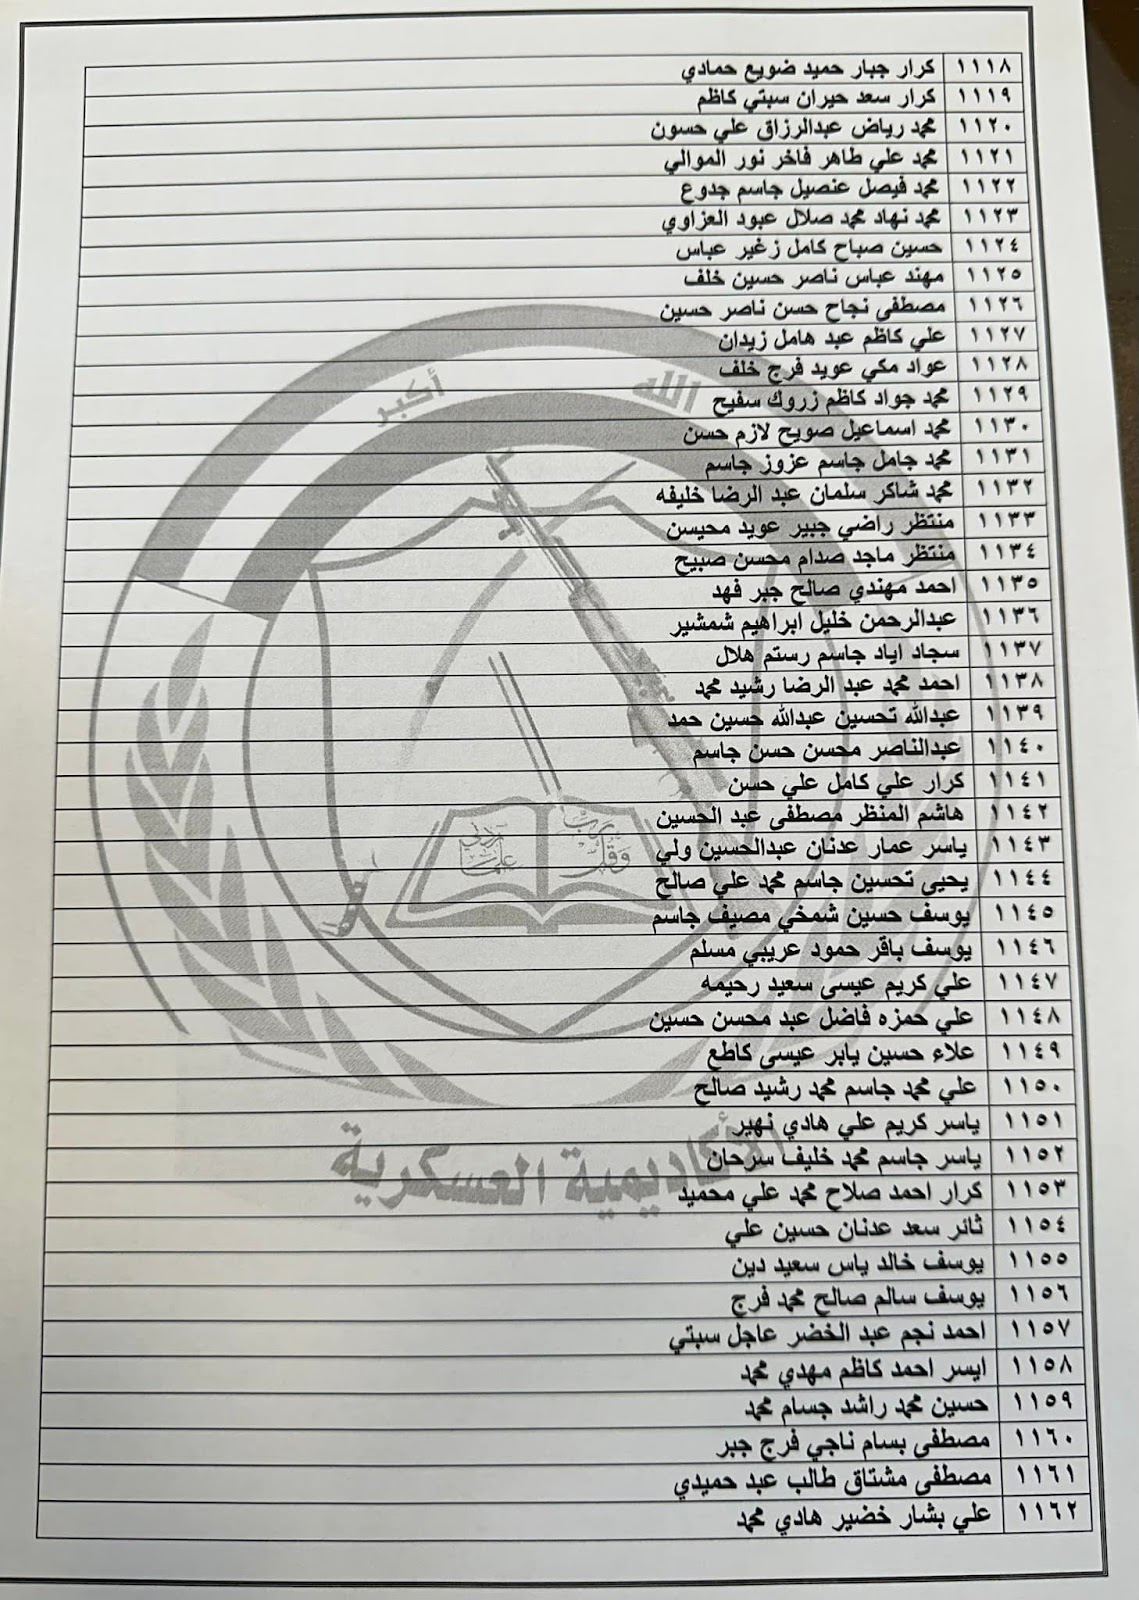 ١١١٨ كرار جبار حميد ضويع حمادي
١١١٩ كرار سعد حيران سبتي كاظم
١١٢٠ محمد رياض عبدالرزاق علي حسون
١١٢١ محمد علي طاهر فاخر نور الموالي
١١٢٢ محمد فيصل عنصيل جاسم جدوع
١١٢٣ محمد نهاد محمد صلال عبود العزاوي
١١٢٤ حسين صباح كامل زغير عباس
١١٢٥ مهند عباس ناصر حسين خلف
١١٢٦ مصطفى نجاح حسن ناصر حسين
١١٢٧ علي كاظم عبد هامل زيدان
١١٢٨ عواد مكي عويد فرج خلف
١١٢٩ محمد جواد كاظم زروك سفيح
١١٣٠ محمد اسماعيل صويح لازم حسن
١١٣١ محمد جامل جاسم عزوز جاسم
١١٣٢ محمد شاكر سلمان عبد الرضا خليفه
١١٣٣ منتظر راضي جبير عويد محيسن
١١٣٤ منتظر ماجد صدام محسن صبيح
١١٣٥ احمد مهندي صالح جبر فهد
١١٣٦ عبدالرحمن خليل ابراهيم شمشير
١١٣٧ سجاد اياد جاسم رستم هلال
١١٣٨ احمد محمد عبد الرضا رشيد محمد
١١٣٩ عبدالله تحسين عبدالله حسين حمد
١١٤٠ عبدالناصر محسن حسن جاسم
١١٤١ كرار علي كامل علي حسن
١١٤٢ هاشم المنظر مصطفى عبد الحسين
١١٤٣ ياسر عمار عدنان عبدالحسين ولي
١١٤٤ يحيى تحسين جاسم محمد علي صالح
١١٤٥ يوسف حسين شمخي مصيف جاسم
١١٤٦ يوسف باقر حمود عريبي مسلم
١١٤٧ علي كريم عيسى سعيد رحيمه
١١٤٨ علي حمزه فاضل عبد محسن حسين
١١٤٩ علاء حسين يابر عيسى كاطع
١١٥٠ علي محمد جاسم محمد رشيد صالح
١١٥١ ياسر كريم علي هادي نهير
١١٥٢ ياسر جاسم محمد خليف سرحان
١١٥٣ كرار احمد صلاح محمد علي محميد
١١٥٤ ثائر سعد عدنان حسين علي
١١٥٥ يوسف خالد ياس سعيد دين
١١٥٦ يوسف سالم صالح محمد فرج
١١٥٧ احمد نجم عبد الخضر عاجل سبتي
١١٥٨ ايسر احمد كاظم مهدي محمد
١١٥٩ حسين محمد راشد جسام محمد
١١٦٠ مصطفى بسام ناجي فرج جبر
١١٦١ مصطفى مشتاق طالب عبد حميدي
١١٦٢ علي بشار خضير هادي محمد
الله أكبر
وقل رب
زدني علما
الأكاديمية العسكرية